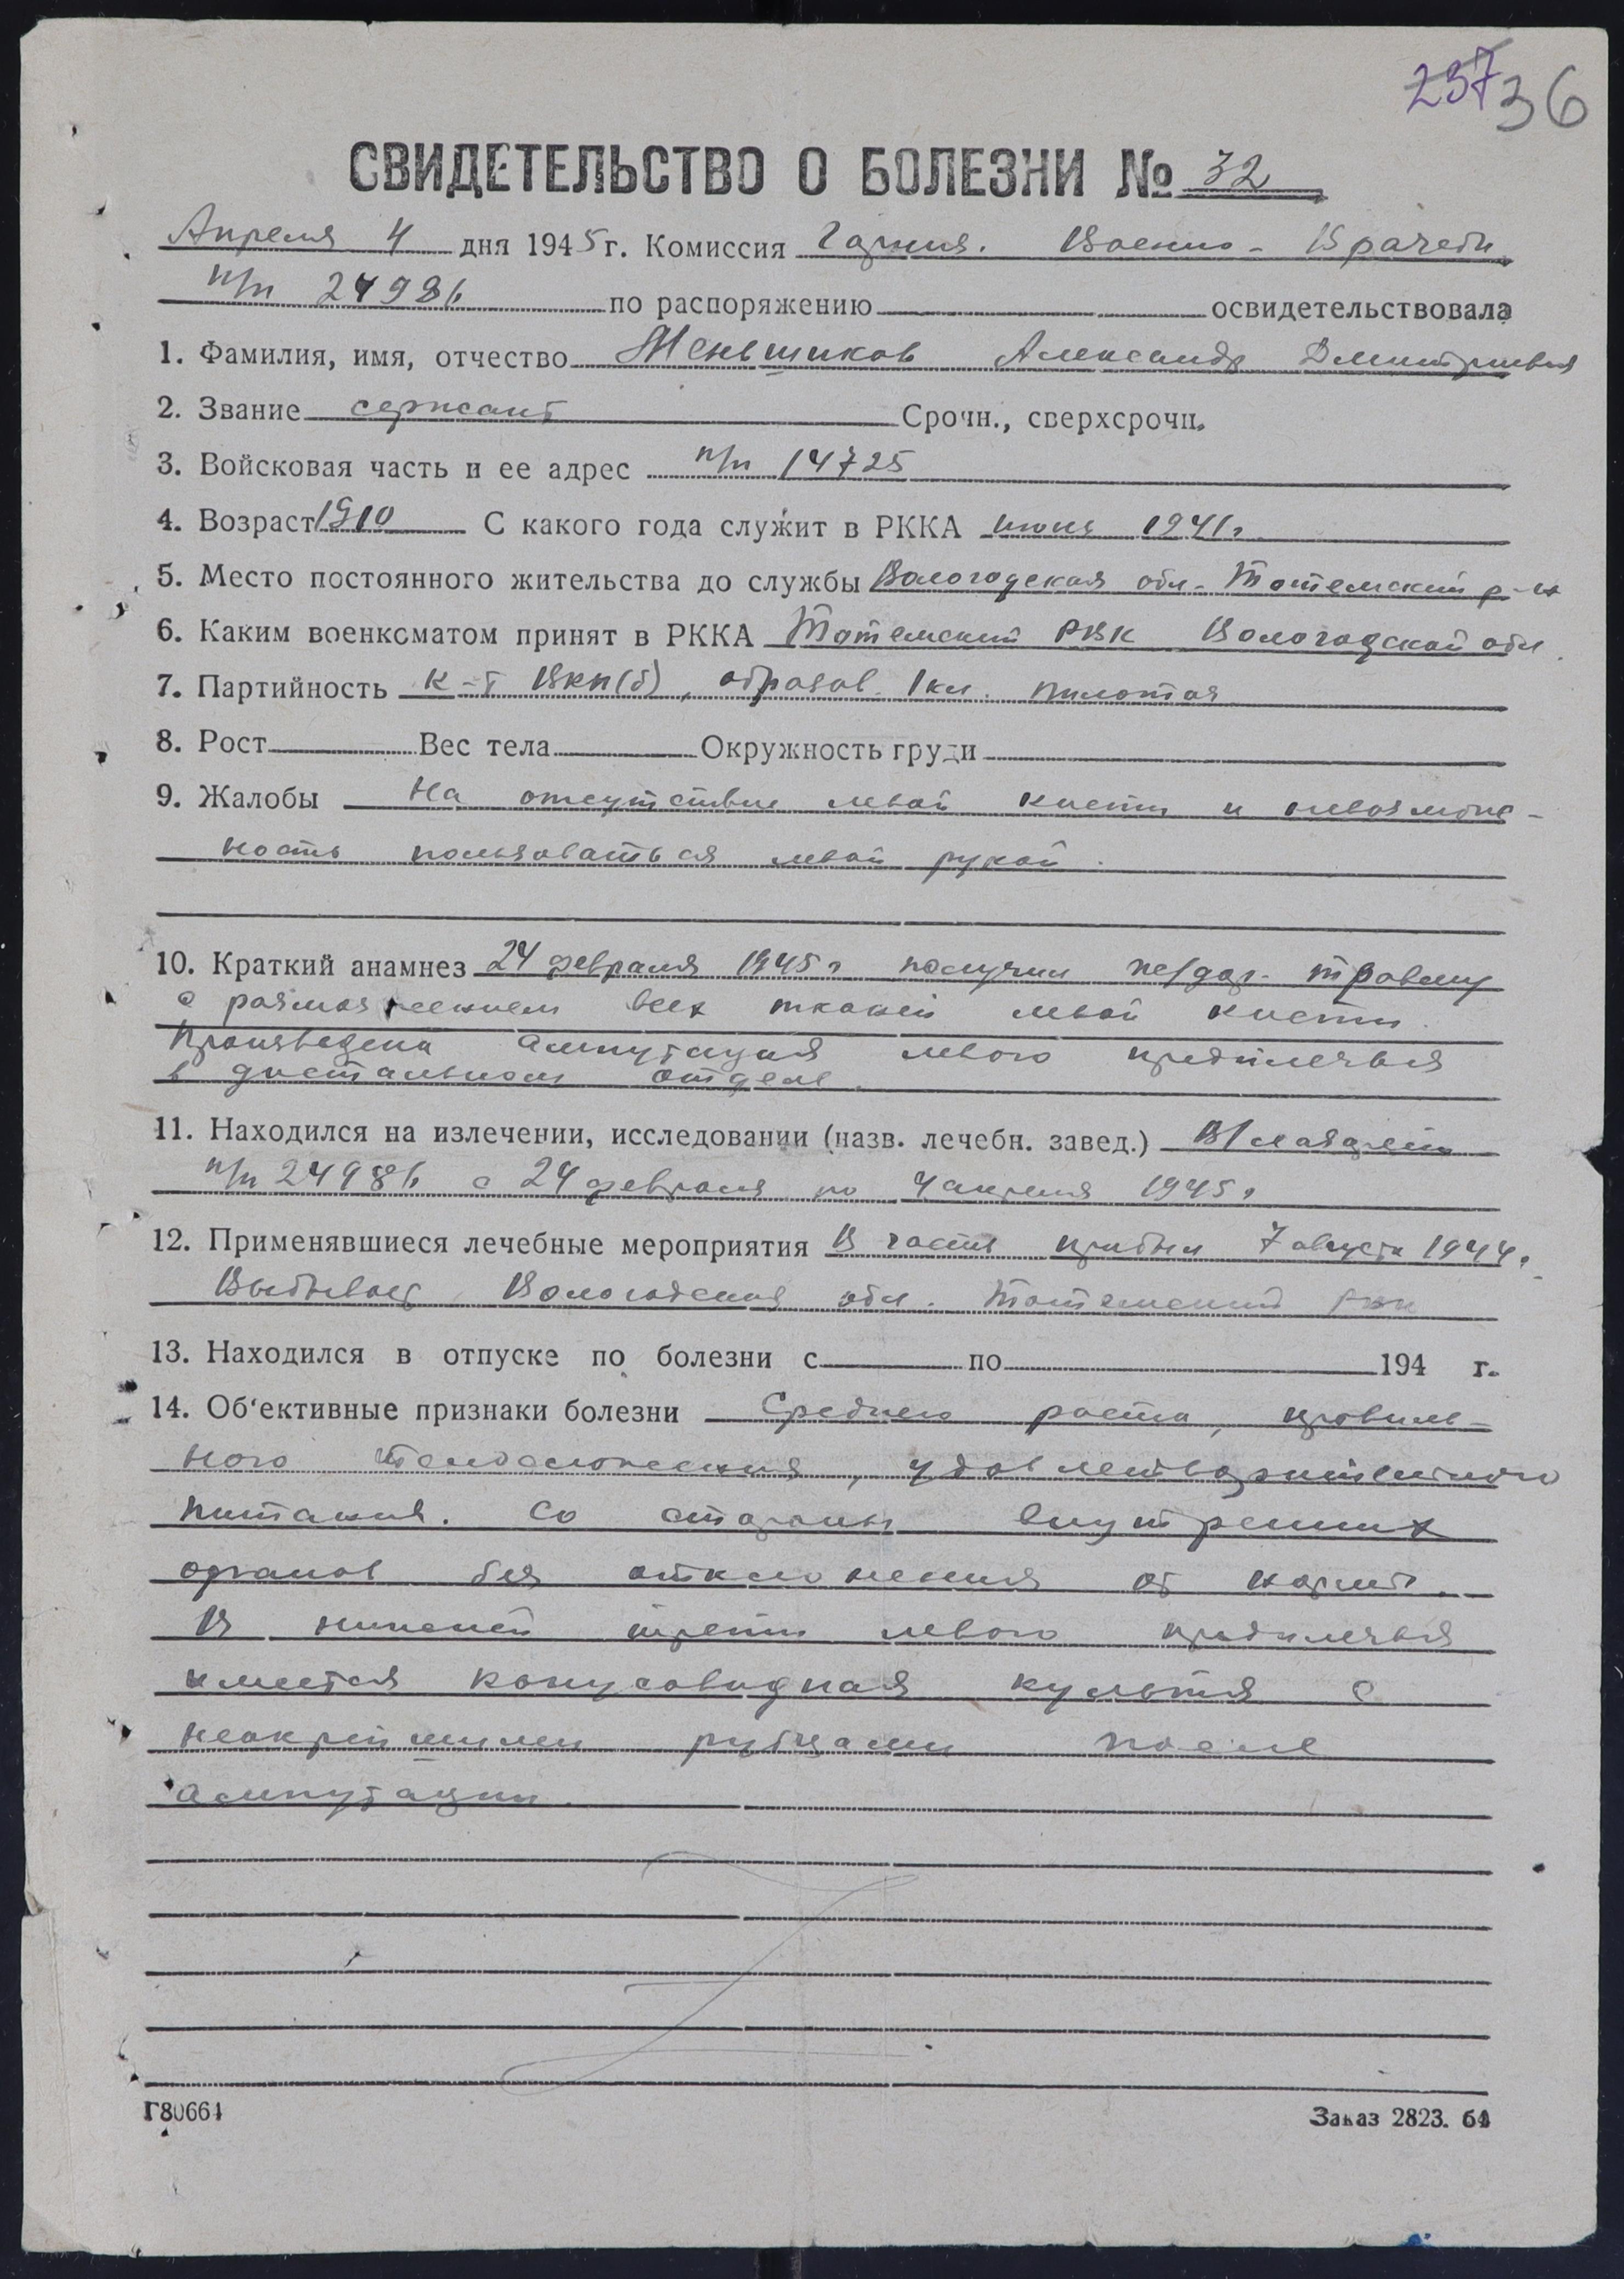 237 36
СВИДЕТЕЛЬСТВО О БОЛЕЗНИ № 32
Апреля 4 дня 1945 г. Комиссия Гарниз. Военно-Врачебн.
п/п 24986 по распоряжению освидетельствовала
1. Фамилия, имя, отчество Меньшиков Александр Дмитриевич
2. Звание сержант Срочн., сверхсрочн.
3. Войсковая часть и ее адрес п/п 14725
4. Возраст 1910 С какого года служит в РККА июня 1941г
5. Место постоянного жительства до службы Вологодская обл. Тотемский р-н
6. Каким военкоматом принят в РККА Тотемский РВК Вологодской обл.
7. Партийность к-т ВКП(б), образов. 1 кл.
8. Рост Вес тела Окружность груди
9. Жалобы На отсутствие левой кисти и невозмож-
ность пользоваться левой рукой.
10. Краткий анамнез 24 февраля 1945 г получил ж/дор. травму
с размозжением всех тканей левой кисти.
Произведена ампутация левого предплечья
в дистальном отделе.
11. Находился на излечении, исследовании (назв. лечебн. завед.) В/лазарет
п/п 24986 с 24 февраля по 4 апреля 1945 г
12. Применявшиеся лечебные мероприятия В часть прибыл 7 августа 1944 г.
Выбывает Вологодская обл. Тотемский рвк
13. Находился в отпуске по болезни с по 194 г.
14. Об'ективные признаки болезни Среднего роста, правиль-
ного телосложения, удовлетворительного
питания. Со стороны внутренних
органов без отклонения от нормы.
В нижней трети левого предплечья
имеется конусовидная культя с
неокрепшими рубцами после
ампутации.
Г80661 Заказ 2823. 64